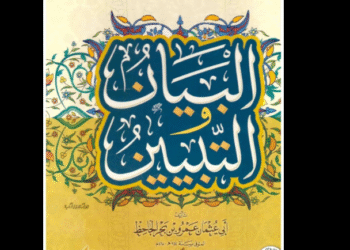 البَيَان
و
التَّبيين
أبي عثمان عمرو بن بحر الجاحظ